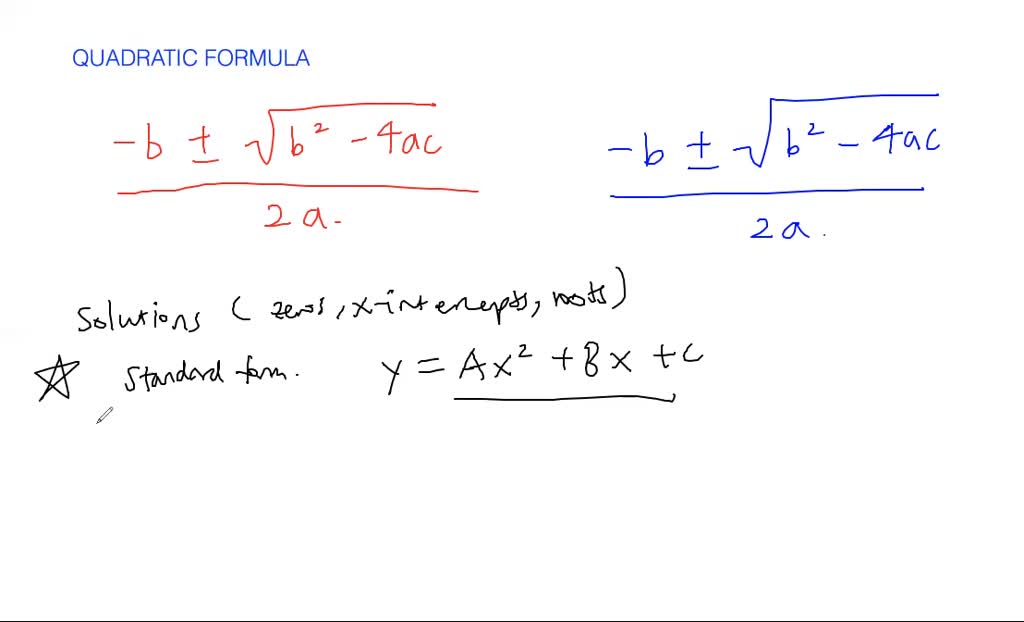 QUADRATIC FORMULA
-b ± √b² - 4ac
2a.
-b ± √b² - 4ac
2a.
Solutions ( zeros, x-intercepts, roots)
☆ Standard form. y = Ax² + Bx + C